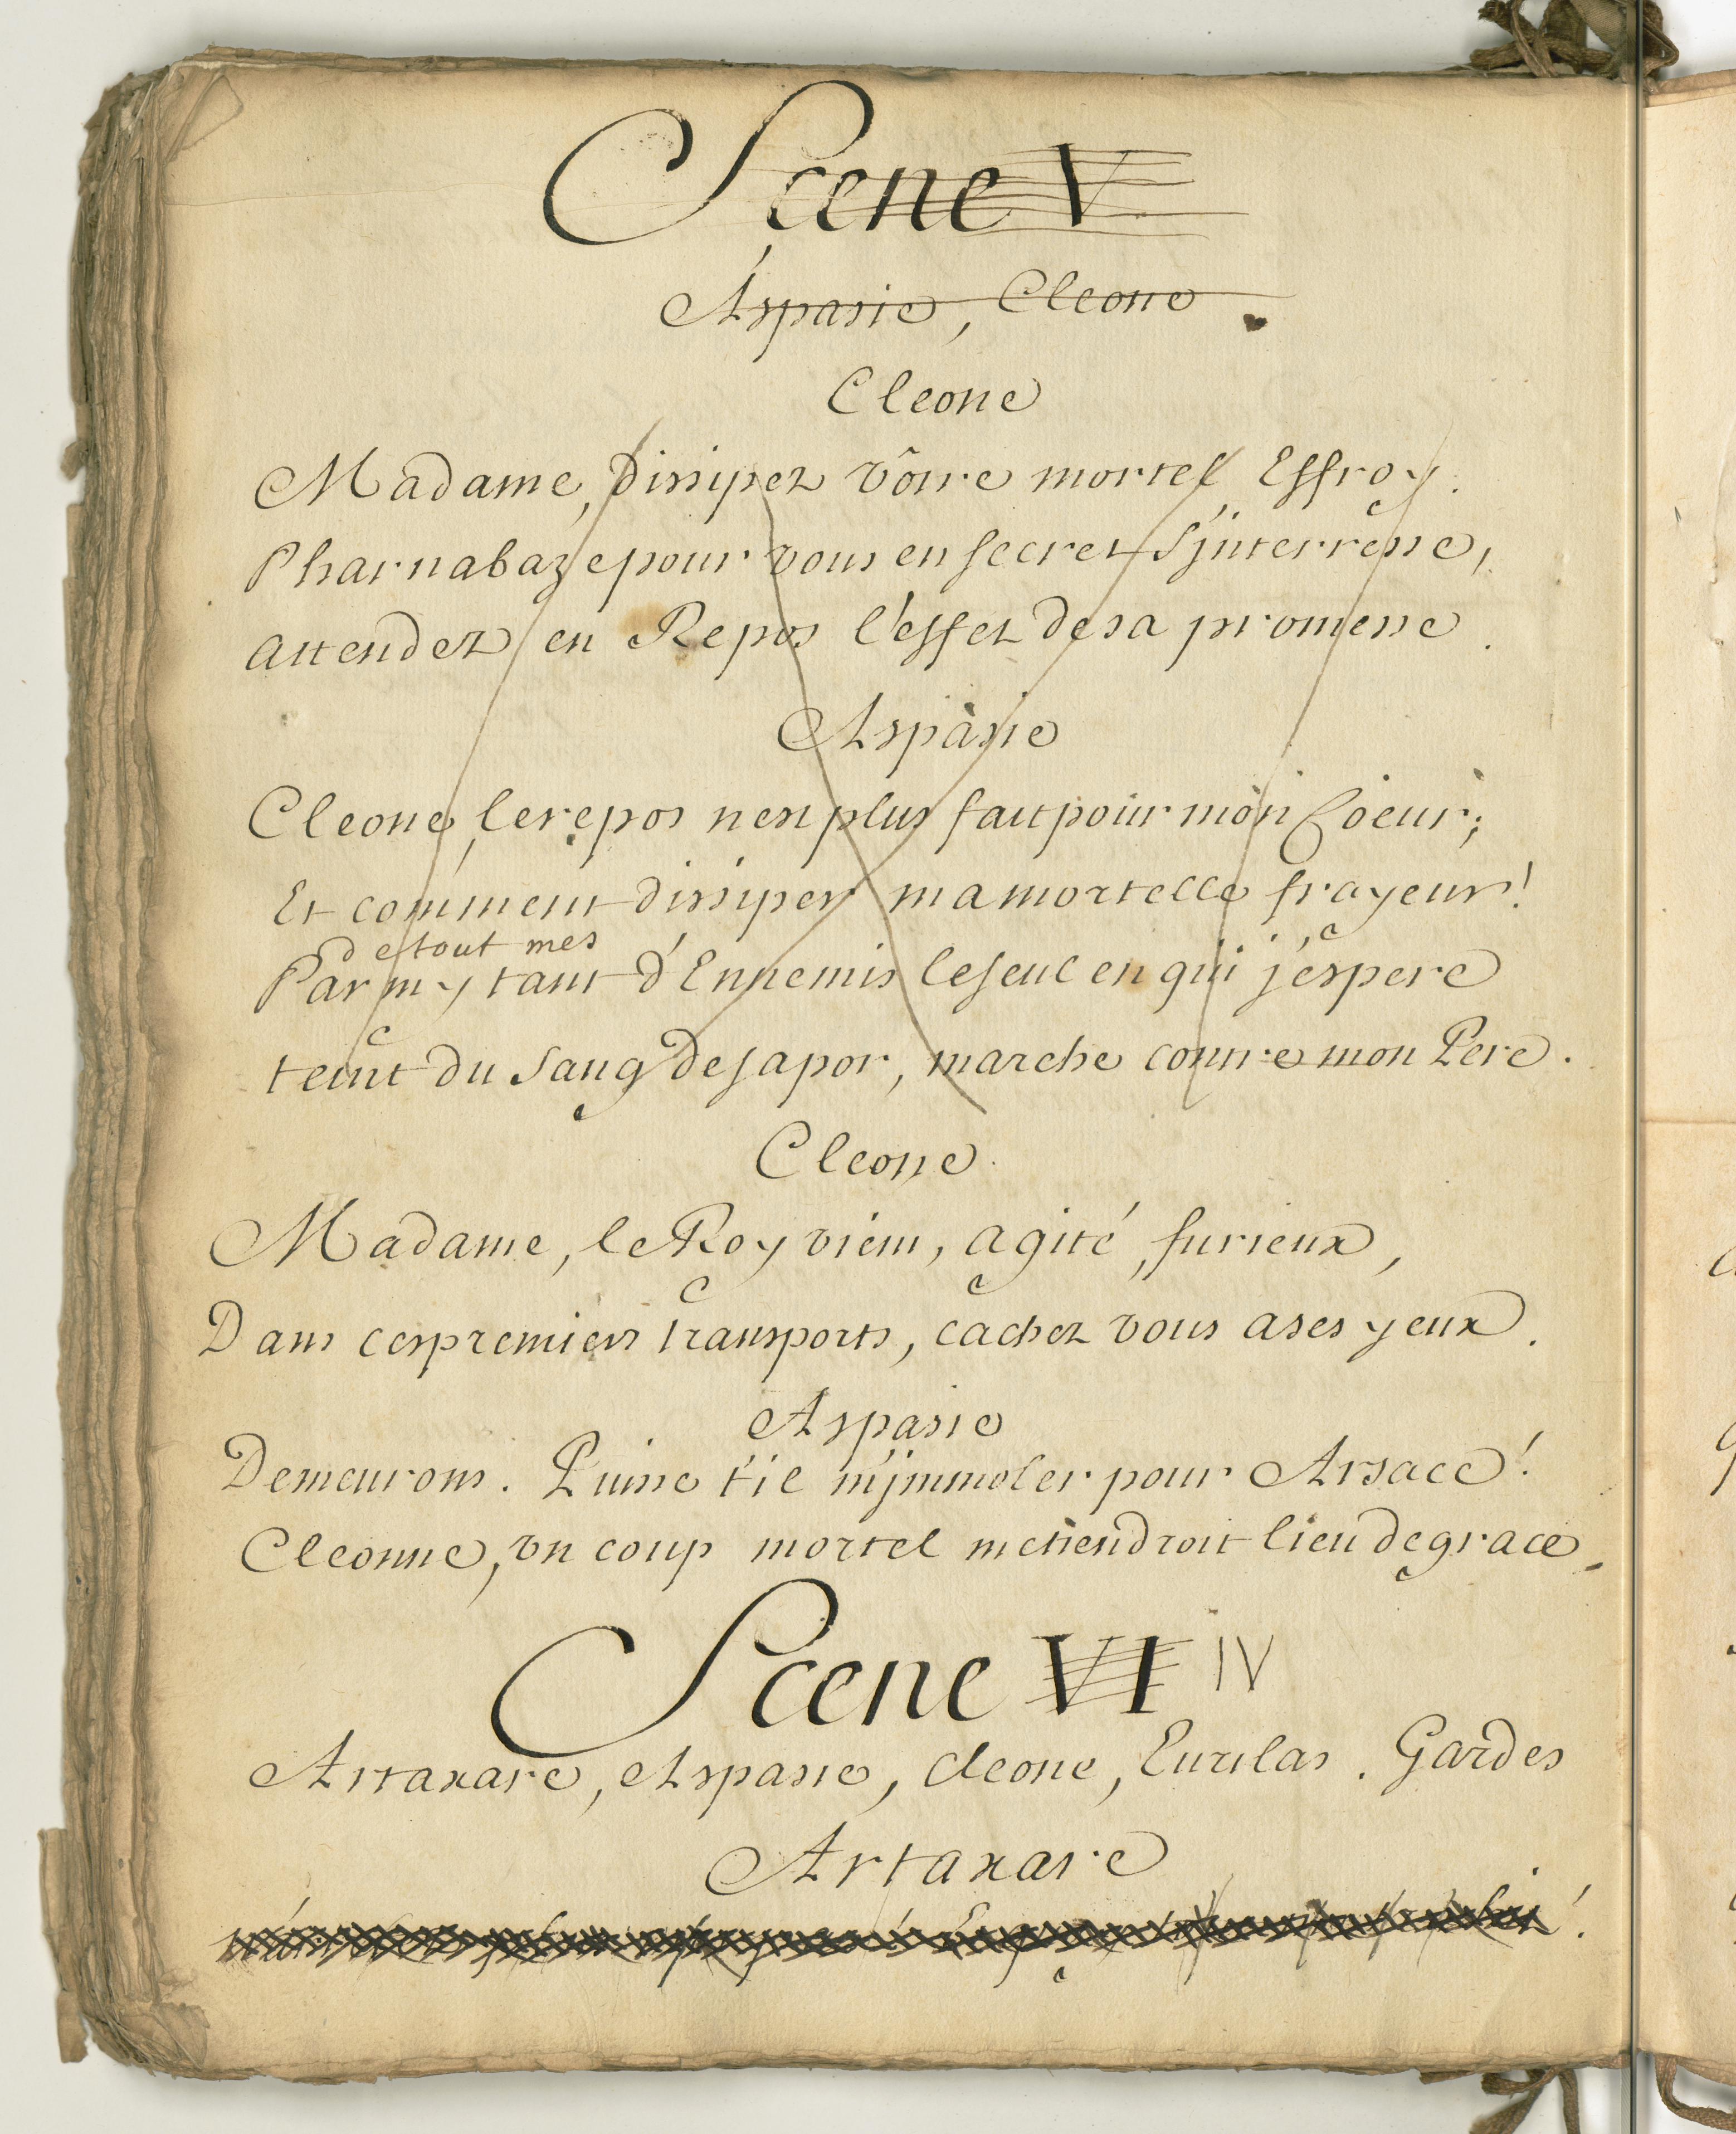 Scene V
Aspasie, Cleone
Cleone
Madame, Dissipez vôtre mortel Effroy.
Pharnabaze pour vous en secret s'jnterresse,
attendez en Repos l'effet de sa promesse.
Aspasie
Cleone, le repos n'est plus fait pour mon Coeur;
Et comment dissiper ma mortelle frayeur!
de tout mes
Parmy tant d'Ennemis le seul en qui j'espere
teint du sang de sapor, marche contre mon Pere.
Cleone
Madame, le Roy vient, agité, furieux,
Dans ces premiers transports, cachez vous a ses yeux.
Aspasie
Demeurons. Puisse t'il m'jmmoler pour Arsace!
Cleonne, vn coup mortel me tiendroit lieu de grace.
Scene VI IV
Artaxare, Aspasie, Cleone, Eurilas. Gardes
Artaxare